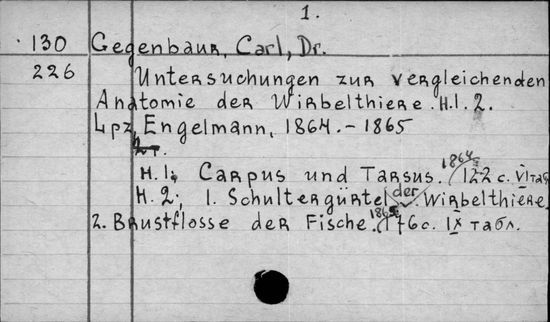 1.
130 Gegenbaur, Carl, Dr.
226 Untersuchungen zur vergleichenden
Anatomie der Wirbelthiere. H.1. 2.
Lpz, Engelmann, 1864. - 1865
2т.
H. 1; Carpus und Tarsus. 1864 122 с. VI таб
H. 2; 1. Schultergürtel der Wirbelthiere.
2. Brustflosse der Fische. 1865 176 с. IX табл.